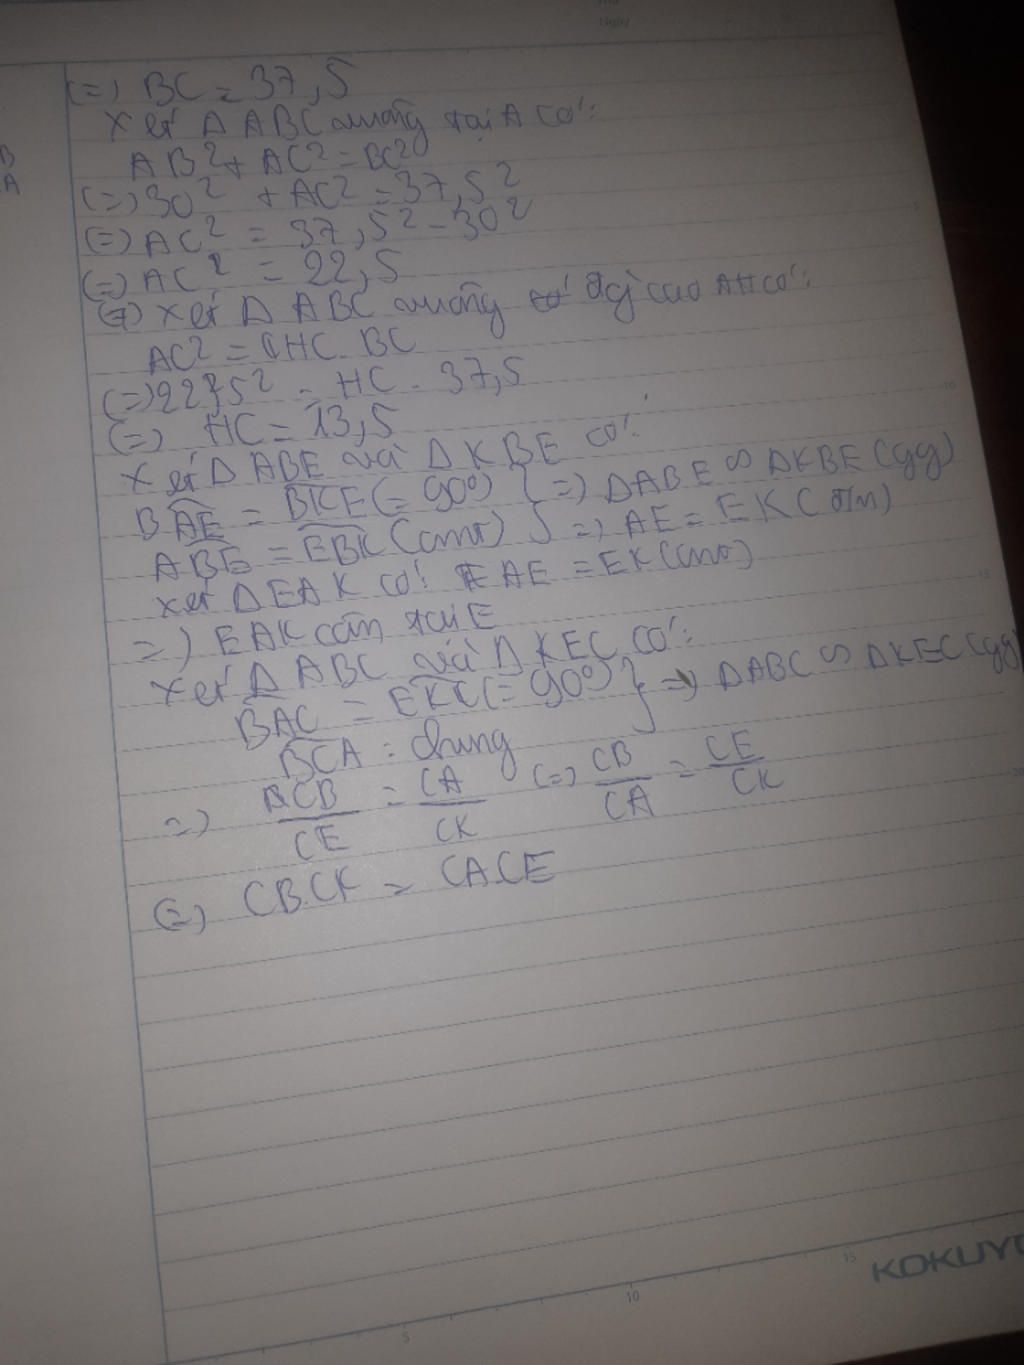 Ngày
B
A
(=) BC = 37,5
Xét Δ ABC vuông tại A có:
AB² + AC² = BC²
(=) 30² + AC² = 37,5²
(=) AC² = 37,5² - 30²
(=) AC² = 22,5
(+) Xét Δ ABC vuông có đg cao AH có:
AC² = CHC. BC
(=) 22,5² = HC . 37,5
(=) HC = 13,5
Xét Δ ABE và Δ KBE có:
BAE = BKE (= 90°) } =) ΔABE ∽ ΔKBE (gg)
ABE = EBK (cmt) =) AE = EK (đ/n)
Xét ΔEAK có: AE = EK (cmt)
=) EAK cân tại E
Xét Δ ABC và Δ KEC có:
BAC = EKC (= 90°) } =) ΔABC ∽ ΔKEC (gg)
BCA : chung
=) CB/CE = CA/CK (=) CB/CA = CE/CK
(=) CB.CK = CA.CE
5
10
15
5
10
15
20
KOKUYO